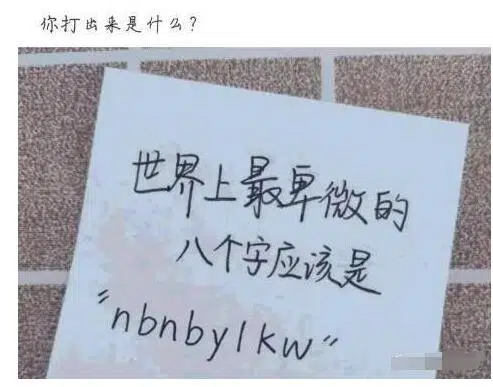 你打出来是什么?
世界上最卑微的
八个字应该是
"nbnbylkw"